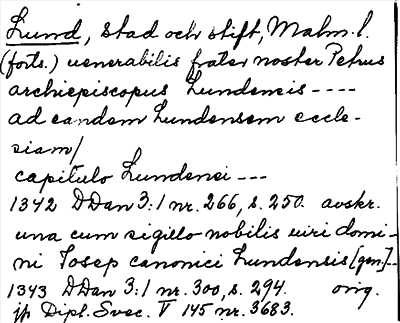 Lund, stad och stift, Malm. l.
(forts.) venerabilis frater noster Petrus
archiepiscopus Lundensis ----
ad eandem Lundensem eccle-
siam/
capitulo Lundensi ---
1342 DDan 3:1 nr. 266, s. 250. avskr.
una cum sigillo nobilis viri domi-
ni Josep canonici Lundensis [gen.]--
1343 DDan 3:1 nr. 300, s. 294. orig.
jfr Dipl. Svec. V 145 nr. 3683.